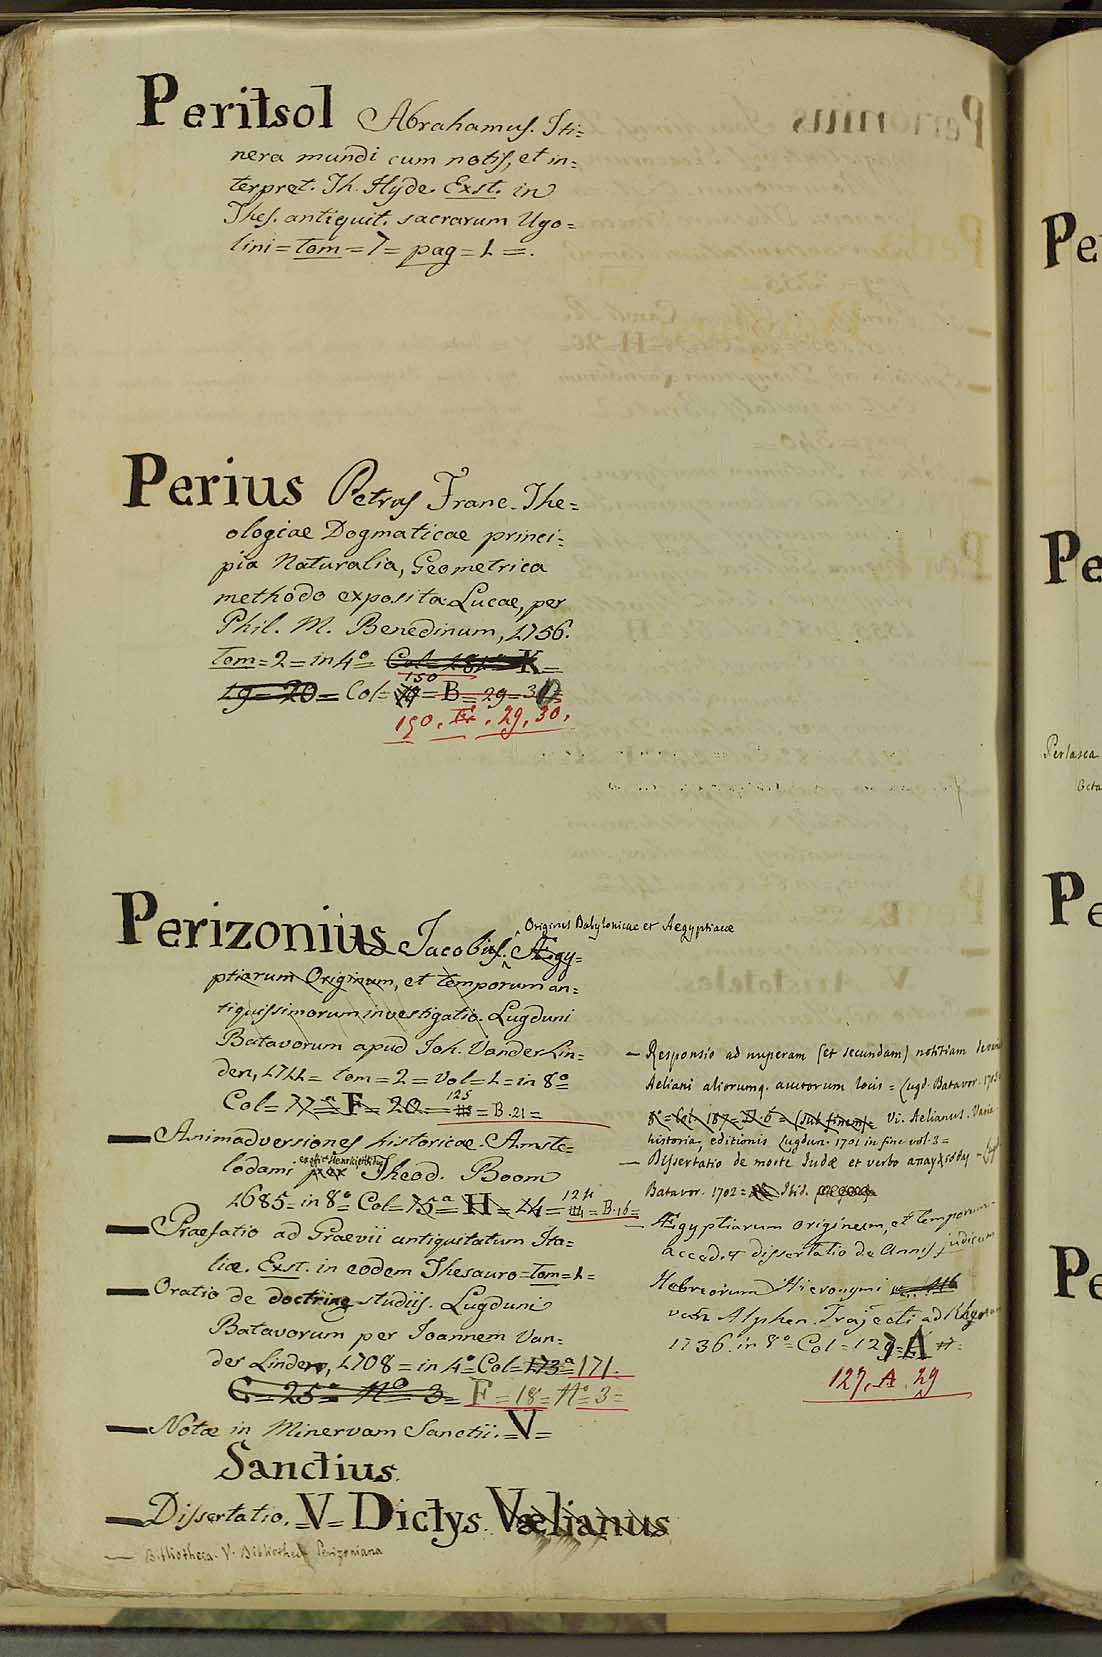 Peritsol Abrahamus. Iti=
nera mundi cum notis, et in=
terpret. Th. Hyde. Exst. in
Thes. antiquit. sacrarum Ugo=
lini = tom = 7 = pag = 1 =.
Perius Petrus Franc. The=
ologiae Dogmaticae princi=
pia Naturalia, Geometrica
methodo exposita Lucae, per
Phil. M. Benedinum, 1756.
tom = 2 = in 4º = Col = K =
19 = 20 = Col = 150 = B = 29 = 30
150. 29. 30.
Perizonius Jacobus. Ægy=
Origines Babylonicae et Aegyptiacae
ptiarum Originum, et temporum an=
tiquissimorum investigatio. Lugduni
Batavorum apud Joh. Vander Lin=
den, 1711 = tom = 2 = vol = 1 = in 8º
Col = 77 = F = 20 = 125 = B. 21 =
— Animadversiones historicae. Amste=
lodami Theod. Boom
1685 = in 8º Col = 75ª H = 14 = 124 = B. 16 =
— Praefatio ad Graevii antiquitatum Ita=
liæ. Exst. in eodem Thesauro = tom = 1 =
— Oratio de doctrinæ studiis. Lugduni
Batavorum per Joannem Van=
der Linden, 1708 = in 4º Col = 173ª = 171.
C = 25ª Nº 3 = F = 18 = Nº 3 =
— Notæ in Minervam Sanctii. = V =
Sanctius.
— Dissertatio. = V = Dictys. V ælianus
— Bibliotheca. V. Bibliotheca Perizoniana
— Responsio ad nuperam (et secundam) notitiam
Aeliani aliorumq. auctorum locis = Lugd. Batavor. 1703
8º = Col. 187 = D. 6 = (sub finem) = Vi. Aelianus. Varia
historia, editionis Lugdun. 1701 in fine vol. 3 =
— Dissertatio de morte Judæ et verbo
Batavor. 1702 = Ibid.
— Ægyptiarum originum, et temporum
accedit dissertatio de Annis judicum
Hebreorum Hieronymi
van Alphen. Trajecti ad Rhenum
1736. in 8º = Col = 129 = A
127. A. 29
Pe
Pe
Perlasca
Octa
Pe
Pe